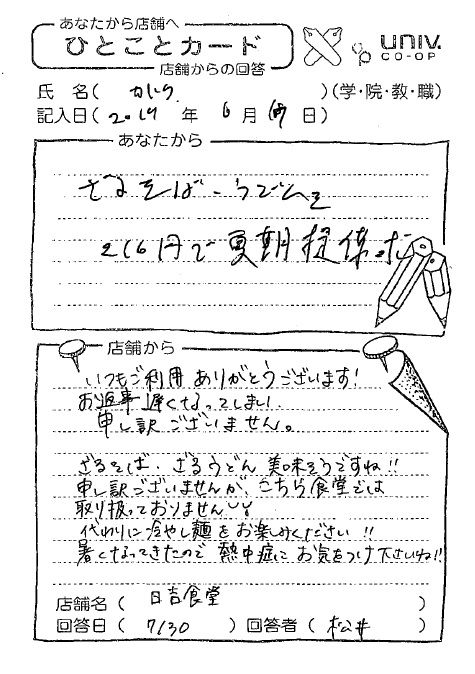 あなたから店舗へ
ひとことカード
店舗からの回答
UNIV.
CO-OP
氏 名( )(学・院・教・職)
記入日( 年 6 月 日)
あなたから
ざるそば・うどんを
216円で夏期提供
店舗から
いつもご利用 ありがとうございます!
お返事 遅くなってしまい、
申し訳ございません。
ざるそば、ざるうどん 美味そうですね!!
申し訳ございませんが、こちら食堂では
取り扱っておりません
代わりに冷やし麺をお楽しみください!!
暑くなってきたので 熱中症に お気をつけ下さいね!!
店舗名( 日吉食堂 )
回答日( 7/30 )回答者( 松井 )